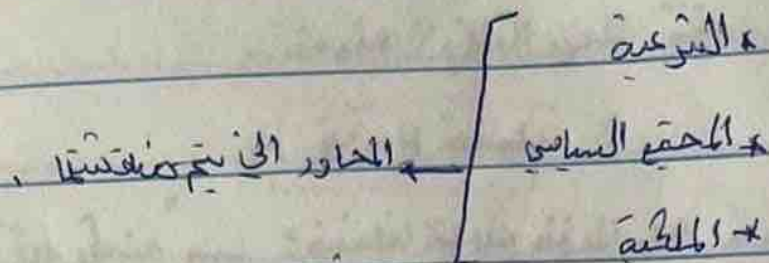 * الشرعية
* المجتمع السياسي ← المحاور الي يتم مناقشتها .
* الملكية